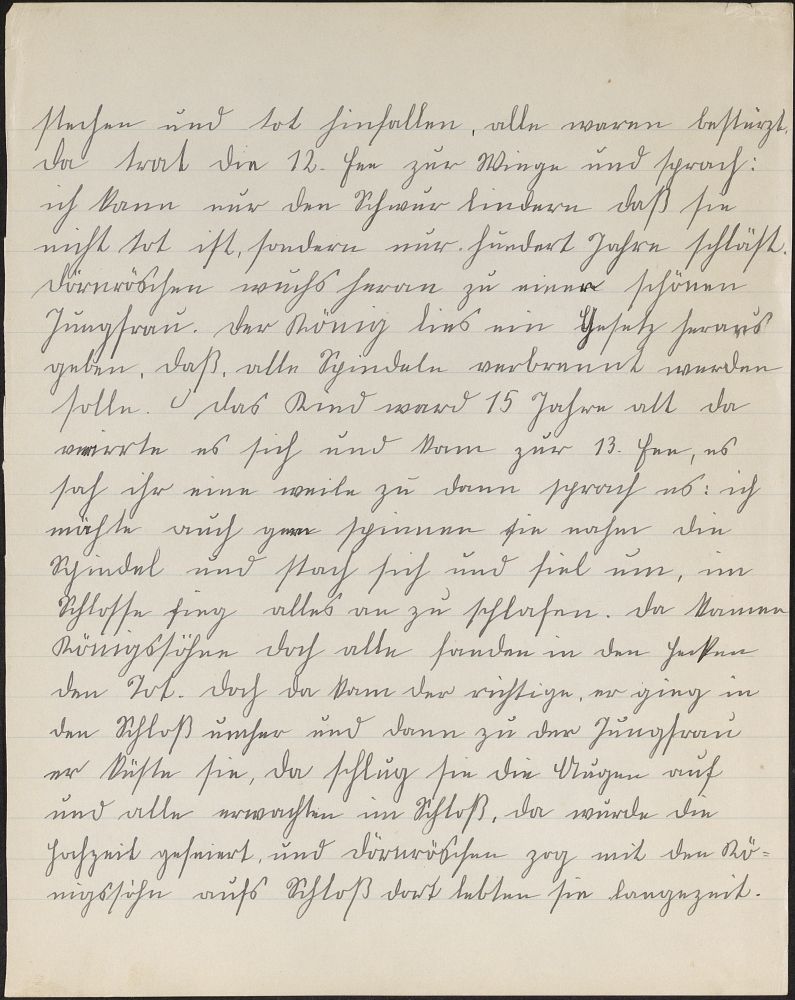 stechen und tot hinfallen, alle waren bestürzt,
da trat die 12. Fee zur Wiege und sprach:
ich kann nur den Schwur lindern daß sie
nicht tot ist, sondern nur hundert Jahre schläft.
Dörnröschen wuchs heran zu einer schönen
Jungfrau. Der König lies ein Gesetz heraus
geben, daß, alle Spindeln verbrennt werden
solle. Das Kind ward 15 Jahre alt da
verirrte es sich und kam zur 13. Fee, es
sah ihr eine weile zu dann sprach es: ich
möchte auch gern spinnen sie nahm die
Spindel und stach sich und fiel um, im
Schlosse fing alles an zu schlafen. Da kamen
Königssöhne doch alle fanden in den Hecken
den Tot. Doch da kam der richtige, er ging in
den Schloß umher und dann zu der Jungfrau
er küste sie, da schlug sie die Augen auf
und alle erwachten im Schloß, da wurde die
Hochzeit gefeiert, und Dörnröschen zog mit den Kö=
nigssohn aufs Schloß dort lebten sie langezeit.